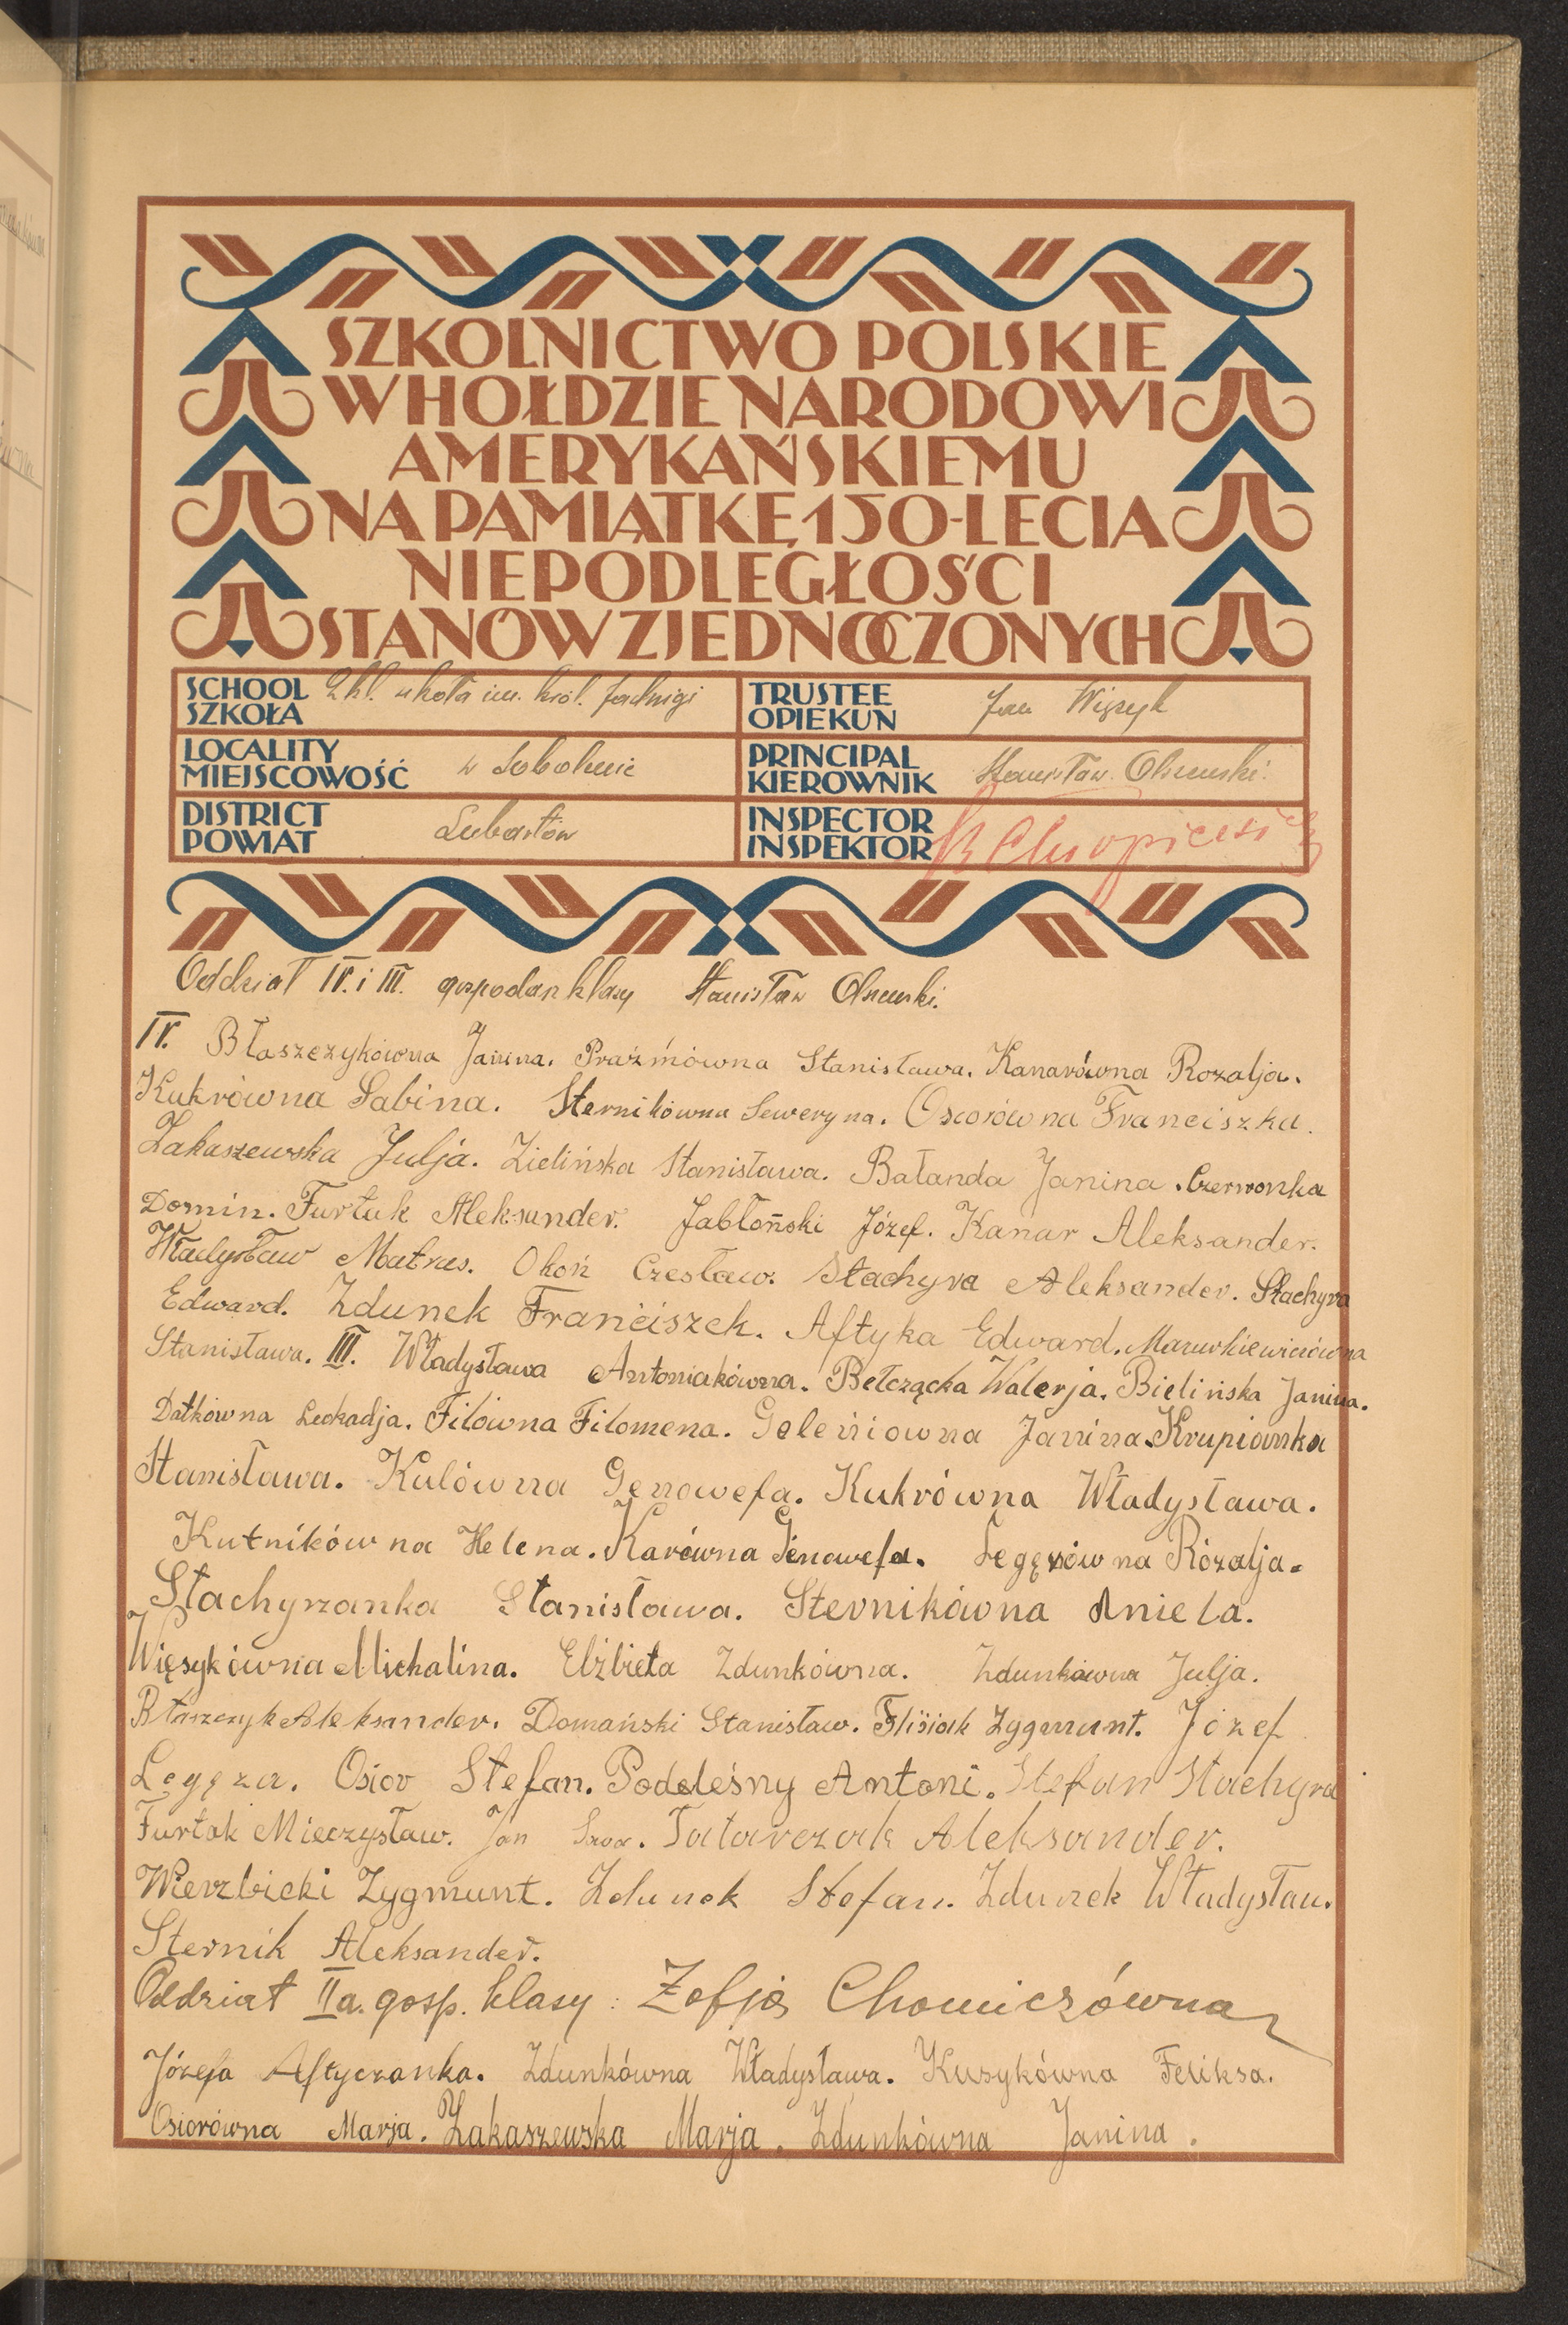 SZKOLNICTWO POLSKIE
W HOŁDZIE NARODOWI
AMERYKAŃSKIEMU
NA PAMIĄTKĘ 150-LECIA
NIEPODLEGŁOŚCI
STANÓW ZJEDNOCZONYCH
SCHOOL SZKOŁA 2 kl. szkoła im. król. Jadwigi
TRUSTEE OPIEKUN Jan Więsyk
LOCALITY MIEJSCOWOŚĆ w
PRINCIPAL KIEROWNIK Stanisław
DISTRICT POWIAT Lubartów
INSPECTOR INSPEKTOR
Oddział IV. i III. gospodarz klasy Stanisław
IV. Błaszczykówna Janina. Prażmówna Stanisława. Kanarówna Rozalja.
Kukrówna Sabina. Sternikówna Seweryna. Osiorówna Franciszka.
Zakaszewska Julja. Zielińska Stanisława. Bałanda Janina. Czerwonka
Domin. Furtak Aleksander. Jabłoński Józef. Kanar Aleksander.
Władysław Matras. Okoń Czesław. Stachyra Aleksander. Stachyra
Edward. Zdunek Franciszek. Aftyka Edward. Mazurkiewiczówna
Stanisława. III. Władysława Antoniakówna. Bełczącka Walerja. Bielińska Janina.
Datkówna Leokadja. Filówna Filomena. Goleniowna Janina. Krupianka
Stanisława. Kulówna Genowefa. Kukrówna Władysława.
Kutnikówna Helena. Karówna Genowefa. Legęzówna Rózalja.
Stachyrzanka Stanisława. Sternikówna Aniela.
Więsykówna Michalina. Elżbieta Zdunkówna. Zdunkówna Julja.
Błaszczyk Aleksander. Domański Stanisław. Flisiak Zygmunt. Józef
Legęza. Osior Stefan. Podeleśny Antoni. Stefan Stachyra
Furtak Mieczysław. Jan Tatarczak Aleksander.
Wierzbicki Zygmunt. Zdunek Stefan. Zdunek Władysław.
Sternik Aleksander.
Oddział II a. gosp. klasy: Zofja Chomiczówna
Józefa Aftyczanka. Zdunkówna Władysława. Kusykówna Feliksa.
Osiorówna Marja. Zakaszewska Marja. Zdunkówna Janina.